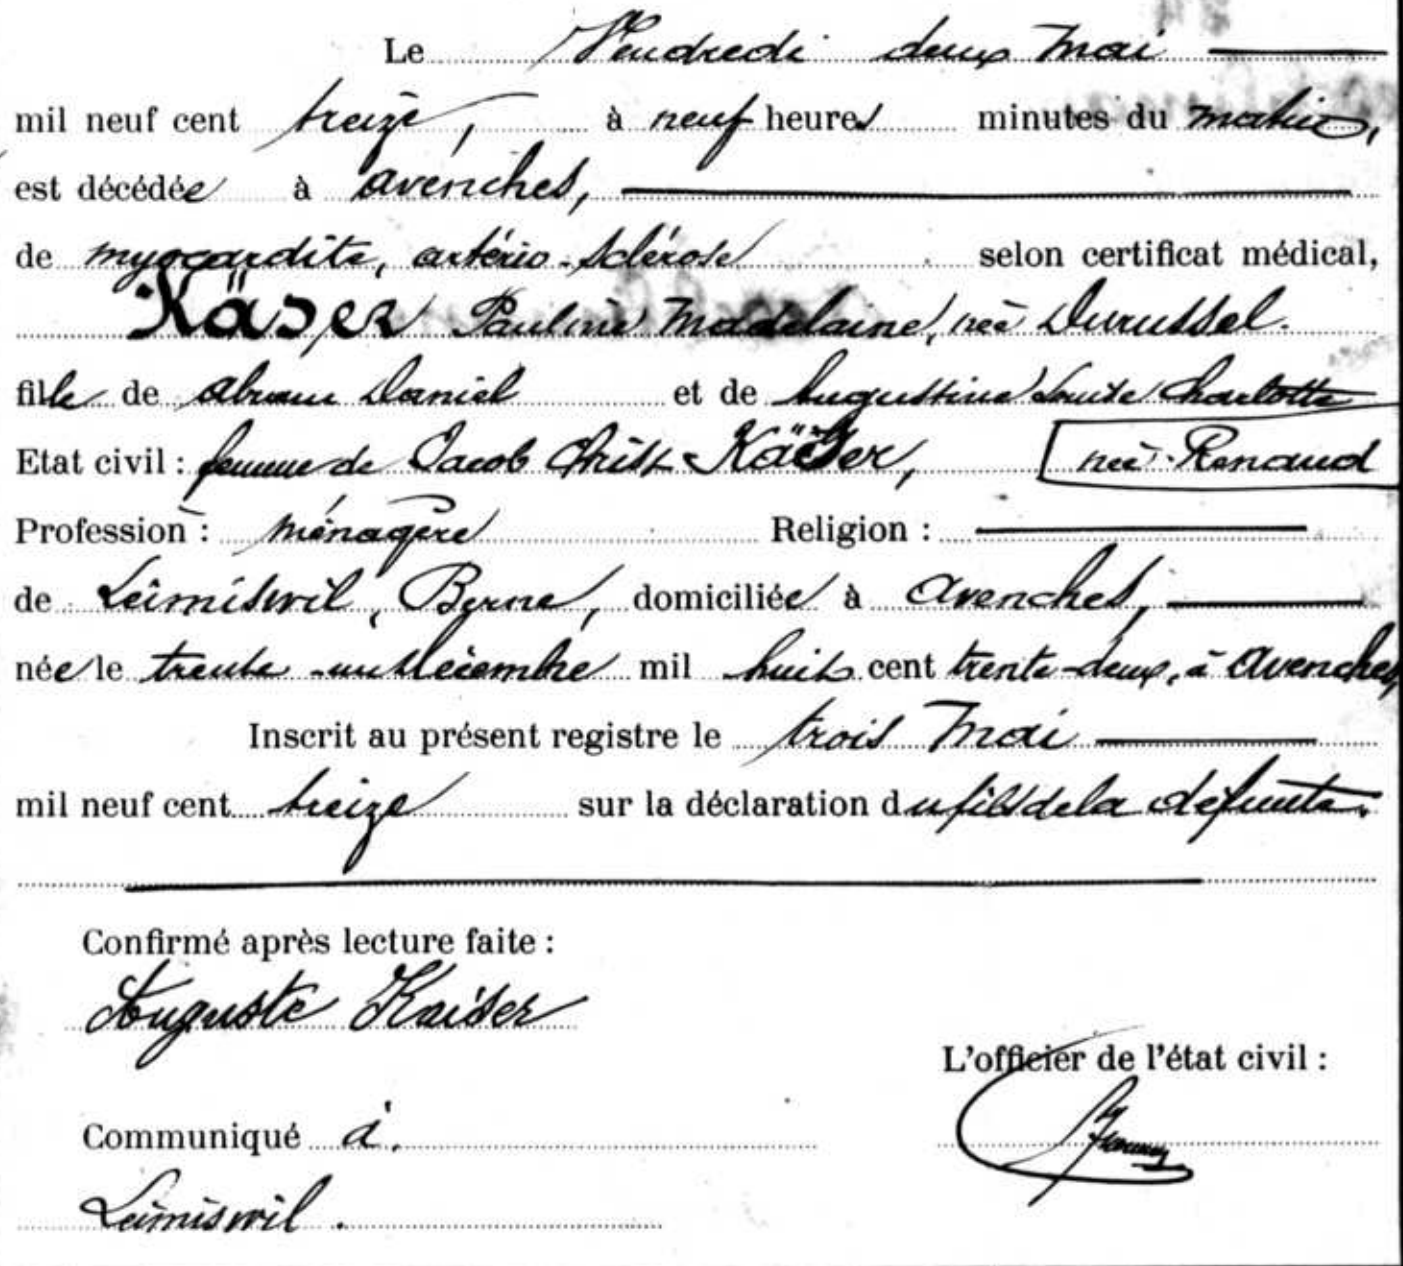 Le Vendredi deux Mai
mil neuf cent treize, à neuf heures minutes du matin,
est décédée à Avenches,
de myocardite, artério-sclérose selon certificat médical,
Käser Pauline Madelaine, née Durussel.
fille de Abram Daniel et de Augustine Louise Charlotte
Etat civil : femme de Jacob Christ Käser, née Renaud
Profession : ménagère Religion :
de Leimiswil, Berne, domiciliée à Avenches,
née le trente-un Décembre mil huit cent trente-deux, à Avenches,
Inscrit au présent registre le trois Mai
mil neuf cent treize sur la déclaration du fils de la défunte.
Confirmé après lecture faite :
Auguste Kaiser
L'officier de l'état civil :
Communiqué à.
Leimiswil.